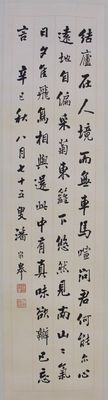 結廬在人境而無車馬喧問君何能尔心
遠地自偏采菊東籬下悠然見南山山氣
日夕佳飛鳥相與還此中有真意欲辨已忘
言 辛巳秋八月七十五叟潘